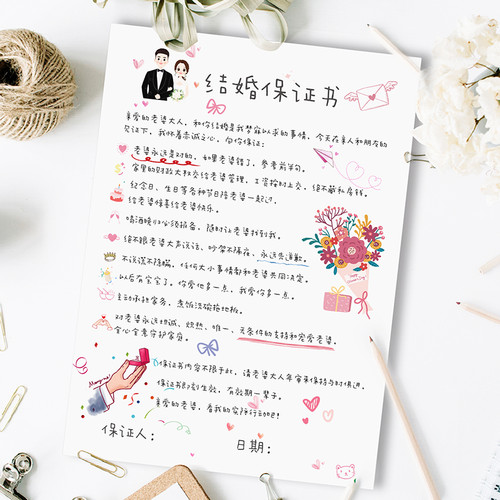 结婚保证书
亲爱的老婆大人，和你结婚是我梦寐以求的事情，今天在亲人和朋友的
见证下，我怀着赤诚之心，向你保证：
老婆永远是对的，如果老婆错了，参考前半句。
家里的财政大权交给老婆管理，工资按时上交，绝不藏私房钱。
纪念日、生日等各种节日陪老婆一起过。
给老婆惊喜给老婆快乐。
喝酒晚归必须报备，随时让老婆找到我。
绝不跟老婆大声说话，吵架不隔夜、永远先道歉。
不说谎不隐瞒，任何大小事情都和老婆共同决定。
以后有宝宝了，你爱他多一点，我爱你多一点。
主动承担家务，煮饭洗碗拖地板。
对老婆永远坦诚、炽热、唯一、无条件的支持和宠爱老婆。
全心全意守护家庭。
保证书内容不限于此，请老婆大人年审来保持与时俱进。
保证书即刻生效，有效期一辈子。
亲爱的老婆，看我的实际行动吧！
保证人：
日期：